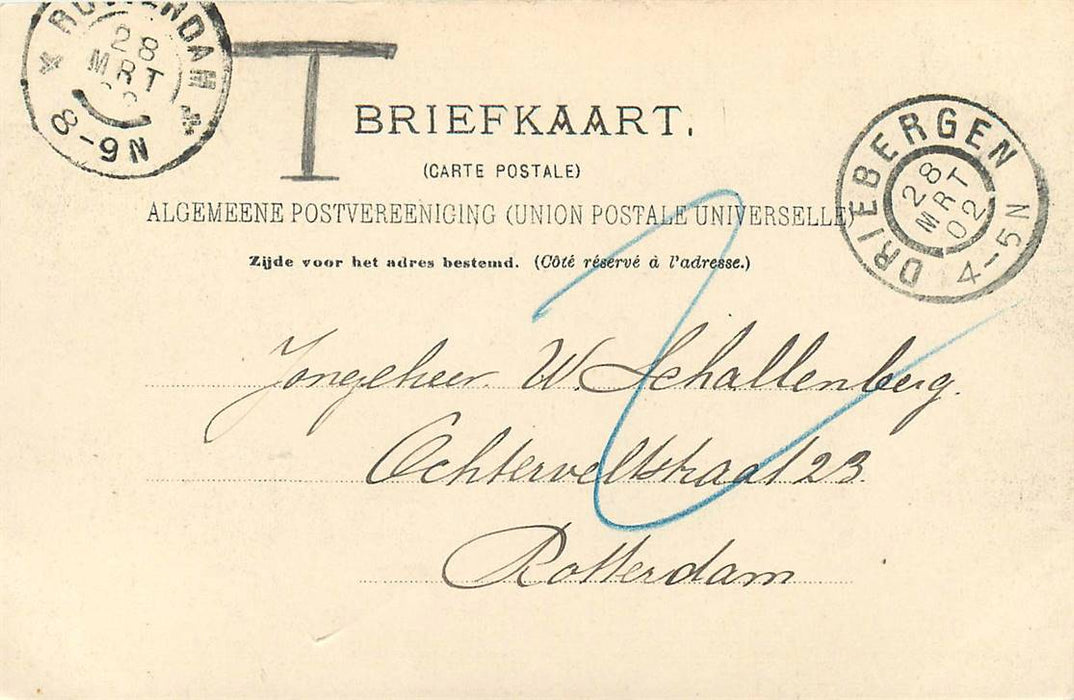 ROTTERDAM
28
MRT
8-9N
T
BRIEFKAART.
(CARTE POSTALE)
ALGEMEENE POSTVEREENIGING (UNION POSTALE UNIVERSELLE)
Zijde voor het adres bestemd. (Côté réservé à l'adresse.)
DRIEBERGEN
28
MRT
02
4-5N
Jongeheer W. Schallenberg.
Ochterveltstraat 23
Rotterdam